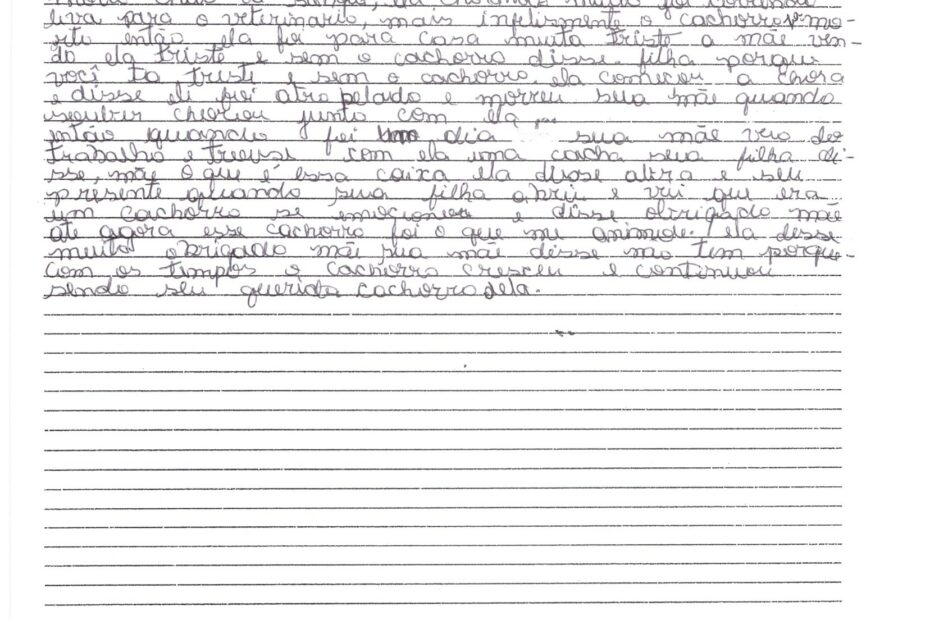 cheia de sangue, ela chorando muito foi correndo
leva para o veterinario, mais infelismente o cachorro mo-
rto então ela foi para casa muito triste a mãe ven-
do ela triste e sem o cachorro disse. filha porque
você ta triste e sem o cachorro. ela começou a chora
e disse ele foi atropelado e morreu sua mãe quando
chorou junto com ela
então quando foi um dia sua mãe veio do
trabalho e trouse com ela uma cacha sua filha di-
sse, mãe o que é essa caixa ela disse abra e seu
presente quando sua filha abriu e viu que era
um cachorro se emocionou e disse obrigado mãe
até agora esse cachorro foi o que me animou. ela disse
muito obrigado mãe sua mãe disse não tem porque
com os tempos o cachorro cresceu e continuou
sendo seu querido cachorro dela.